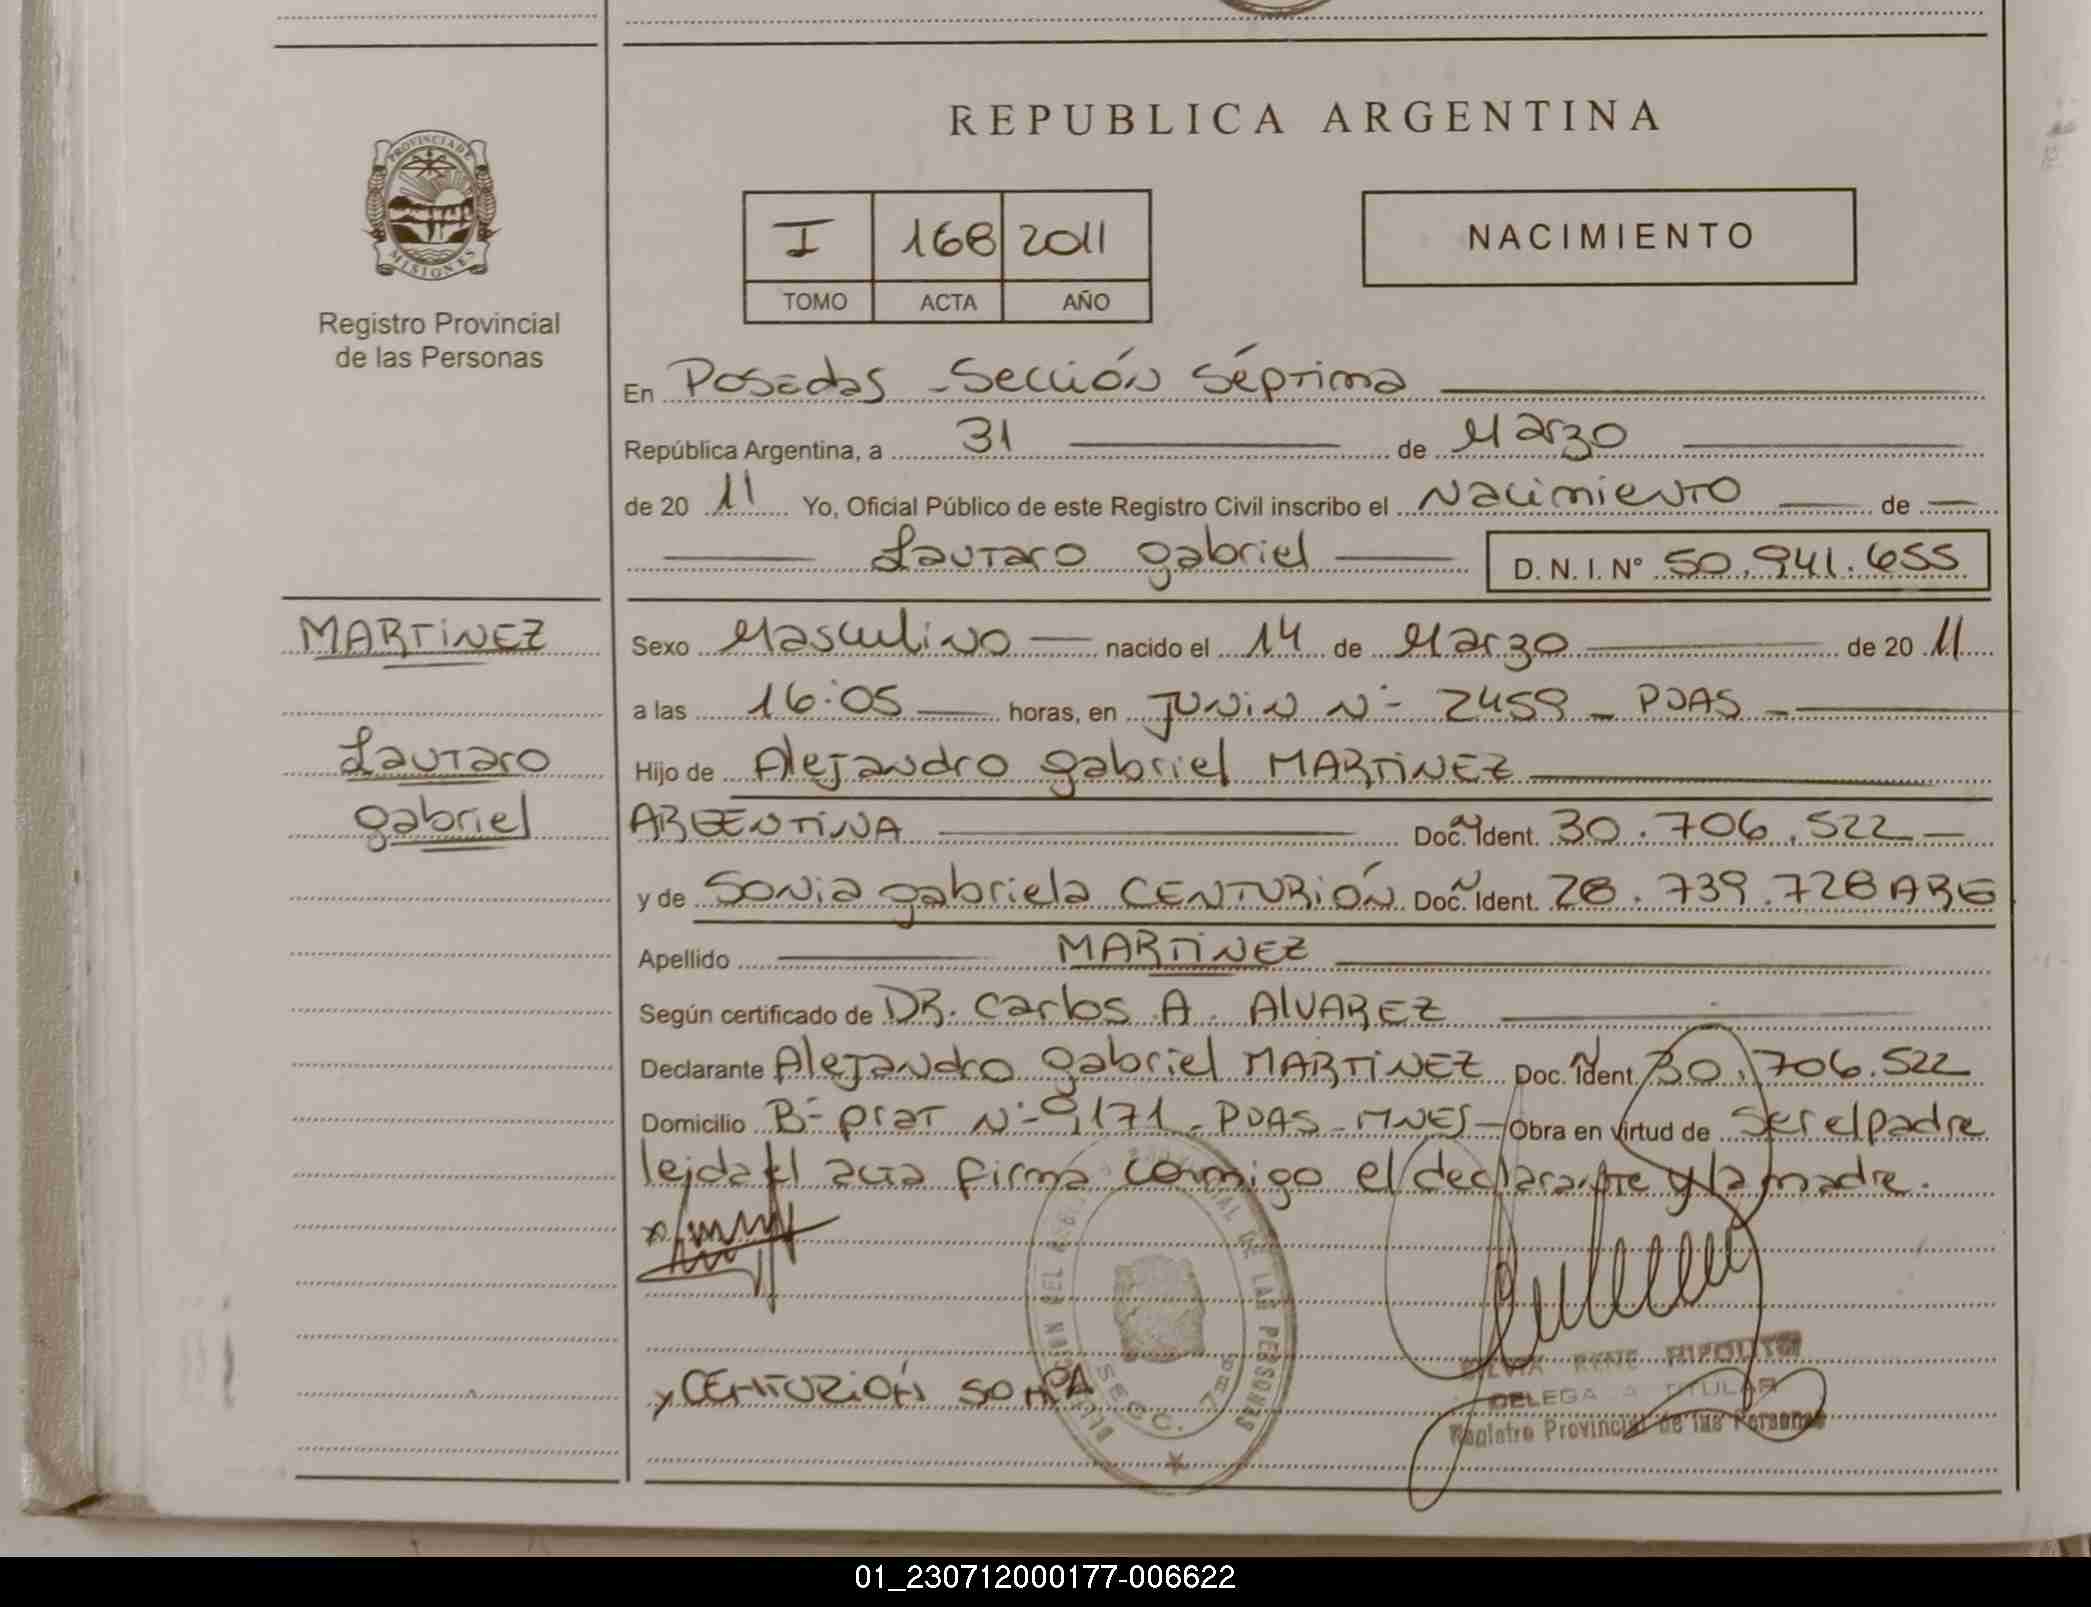 REPUBLICA ARGENTINA
PROVINCIA DE MISIONES
Registro Provincial
de las Personas
I 168 2011
TOMO ACTA AÑO
NACIMIENTO
En Posadas - Sección Séptima
República Argentina, a 31 de Marzo
de 20 11 Yo, Oficial Público de este Registro Civil inscribo el Nacimiento de
Lautaro gabriel D. N. I. N° 50.941.655
MARTINEZ
Lautaro
gabriel
Sexo Masculino nacido el 14 de Marzo de 20 11
a las 16:05 horas, en JUNIN N- 2459 - PDAS -
Hijo de Alejandro gabriel MARTINEZ
ARGENTINA Doc. Ident. 30.706.522
y de SONia gabriela CENTURIÓN Doc. Ident. 28.739.728 ARG
Apellido MARTINEZ
Según certificado de DR. Carlos A. ALVAREZ
Declarante Alejandro gabriel MARTINEZ Doc. Ident. 30.706.522
Domicilio B- prat N- 9171 - PDAS - MNES - Obra en virtud de ser el padre
leida el acta firma conmigo el declarante y la madre.
x
x CENTURIÓN SONIA
DELEGADA TITULAR
Registro Provincial de las Personas
SECC. 7ma
01_230712000177-006622